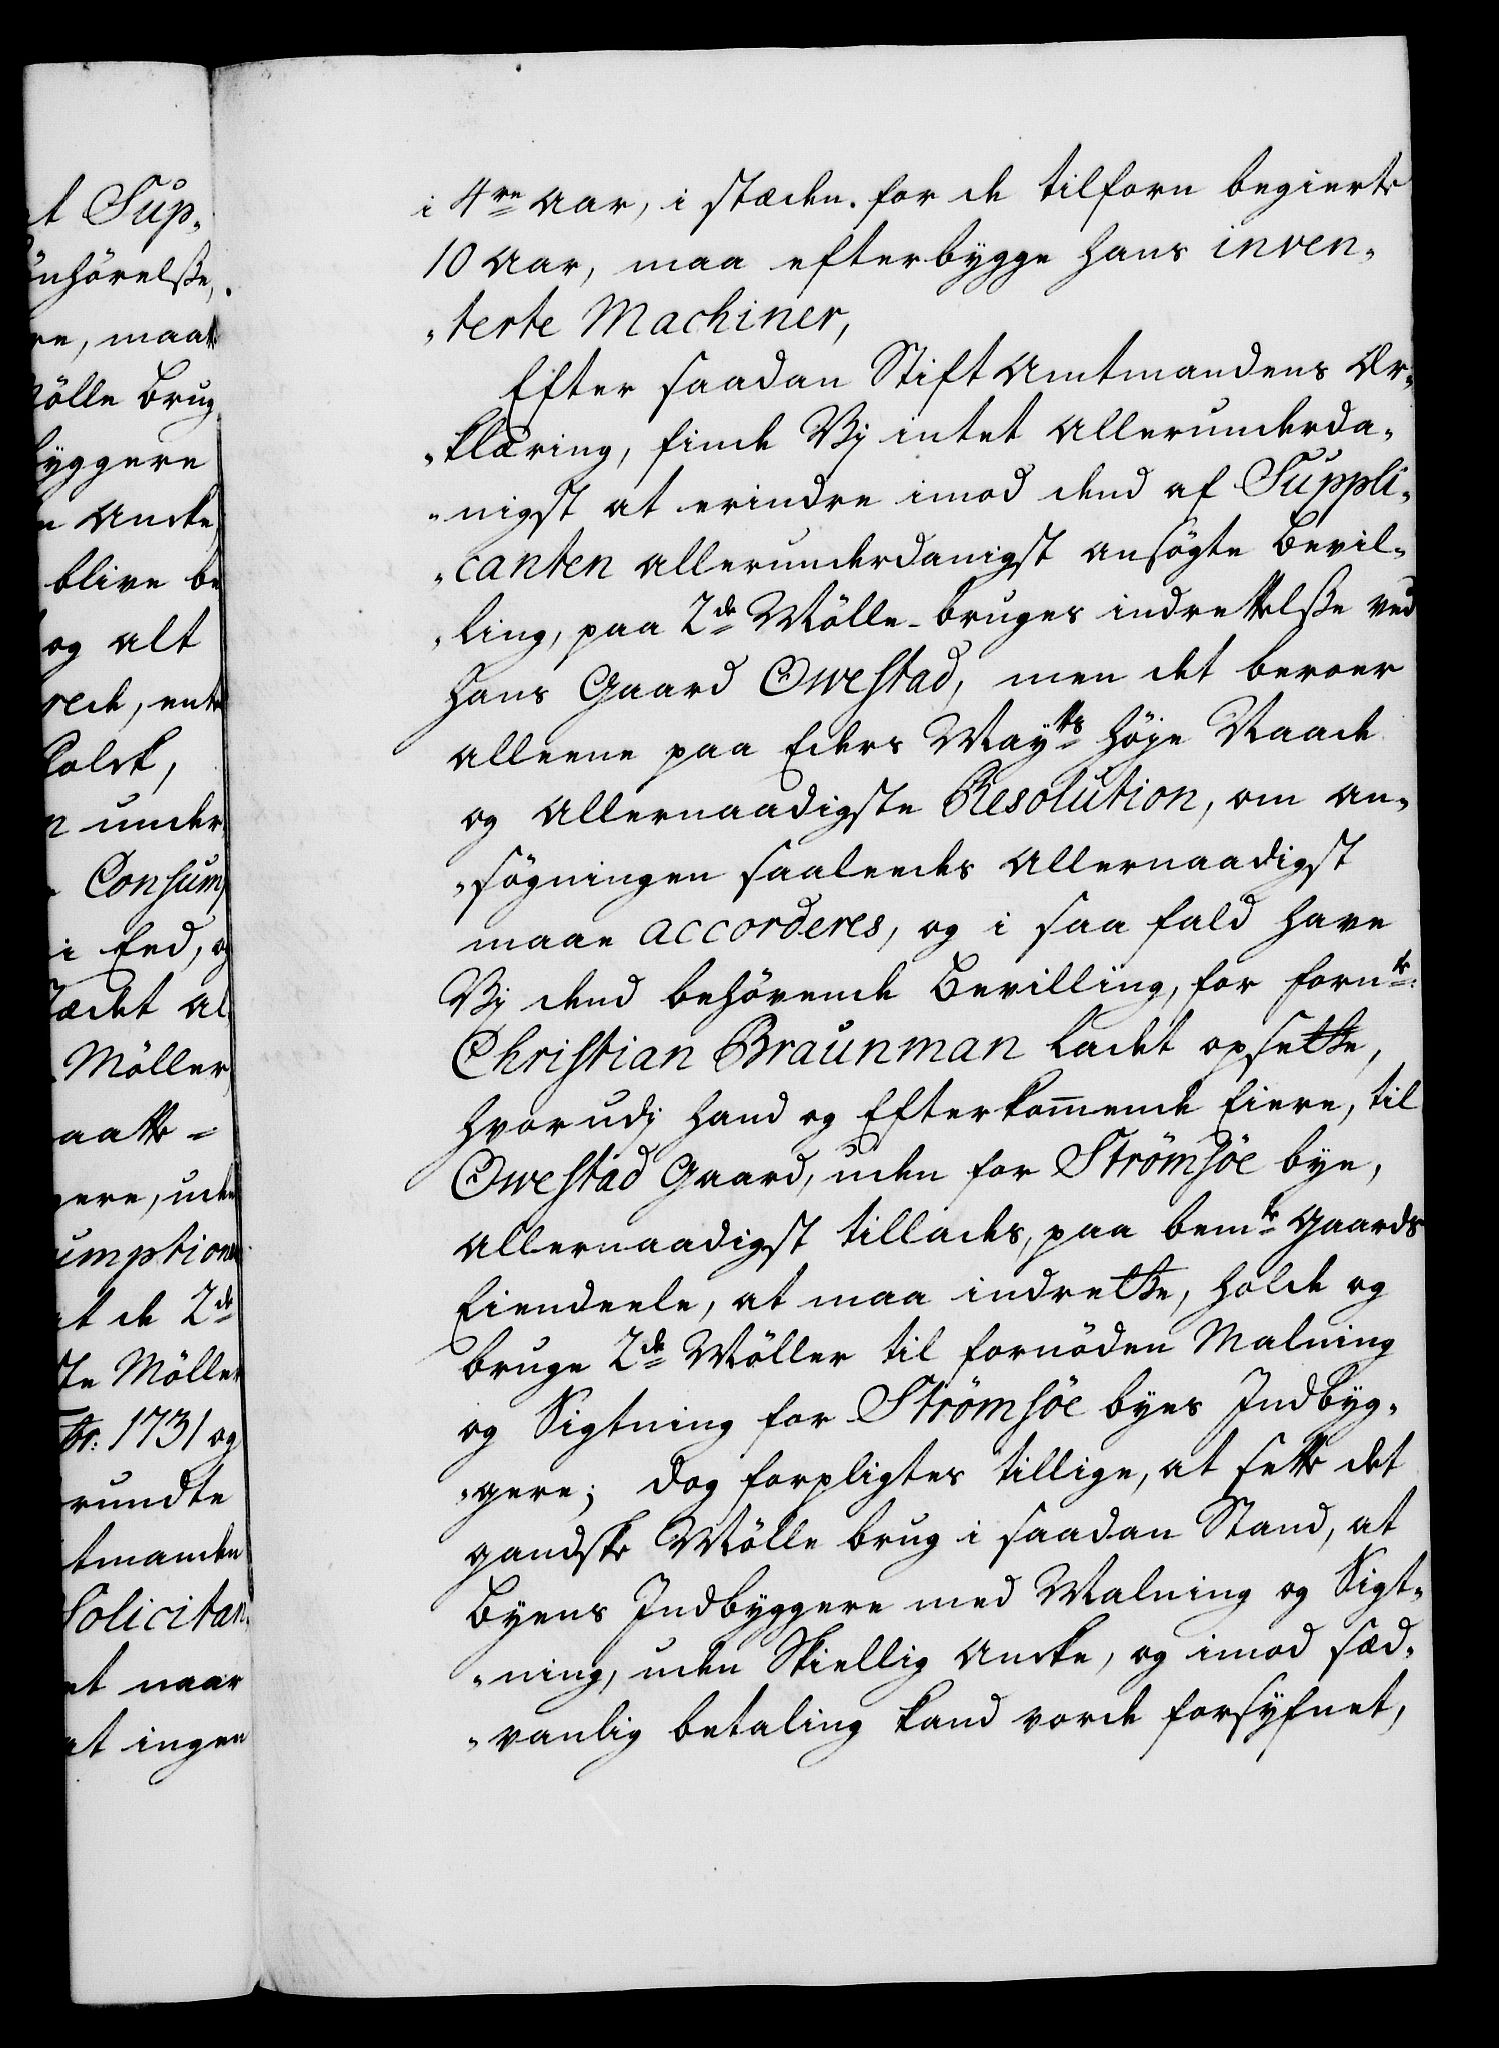 t Sup-
önhörelsse,
re, maatte
Mölle Brug
byggere
n Ancke
blive be
og alt
rede, ent
Told,
n under
Consum
i End, og
stædet al
Möller
aatte =
gere, uden
umption
at de 2de
ste Möller
br: 1731 og
rundte
tmanden
Solicitan
et naar
at ingen
i 4re Aar, i stæden for de tilforn begierte
10 Aar, maa efterbygge hans inven-
-terte Machiner,
Efter saadan Stift Amtmandens Er-
-klæring, finde Vi intet allerunderda-
-nigst at erindre imod dend af Suppli-
-canten allerunderdanigst ansögte Bevil-
-ling, paa 2de Mölle-bruges indrettelsse ved
hans Gaard Owestad, men det beroer
alleene paa Eders Mayts höje Naade
og allernaadigste Resolution, om an-
-sögningen saaleedes allernaadigst
maae accorderes, og i saa fald have
Vi dend behövende Bevilling, for fornte
Christian Braunman ladet opsette,
hvorudj hand og Efterkommende Eiere, til
Owestad Gaard, uden for Strömsöe bye,
allernaadigst tillades, paa bemte Gaards
Eiendeele, at maa indrette, holde og
bruge 2de Möller til fornöden Malning
og Sigtning for Strömsöe byes Indbyg-
-gere; dog forpligtes tillige, at sette det
gandske Mölle brug i saadan Stand, at
Byens Indbyggere med Malning og Sigt-
-ning, uden Skiellig Ancke, og imod sæd-
-vanlig betaling kand vorde forsyfnet,